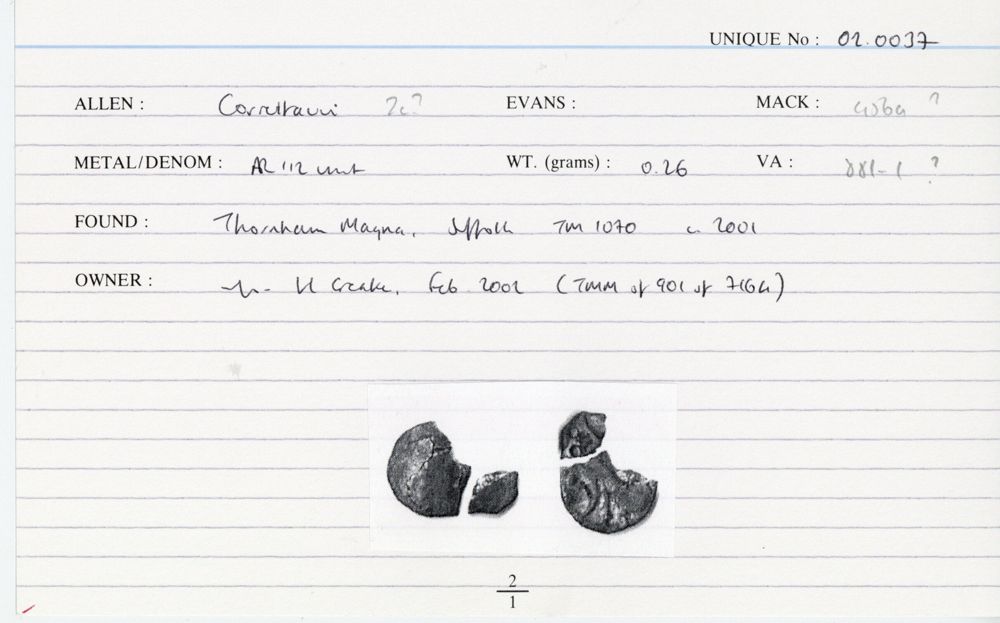 UNIQUE No : 02.0037
ALLEN : Corieltauvi 2c? EVANS : MACK : 406a ?
METAL/DENOM : AR 1/2 unit WT. (grams) : 0.26 VA : 881-1 ?
FOUND : Thornham Magna, Suffolk TM 1070 c. 2001
OWNER : Feb 2002
2
1